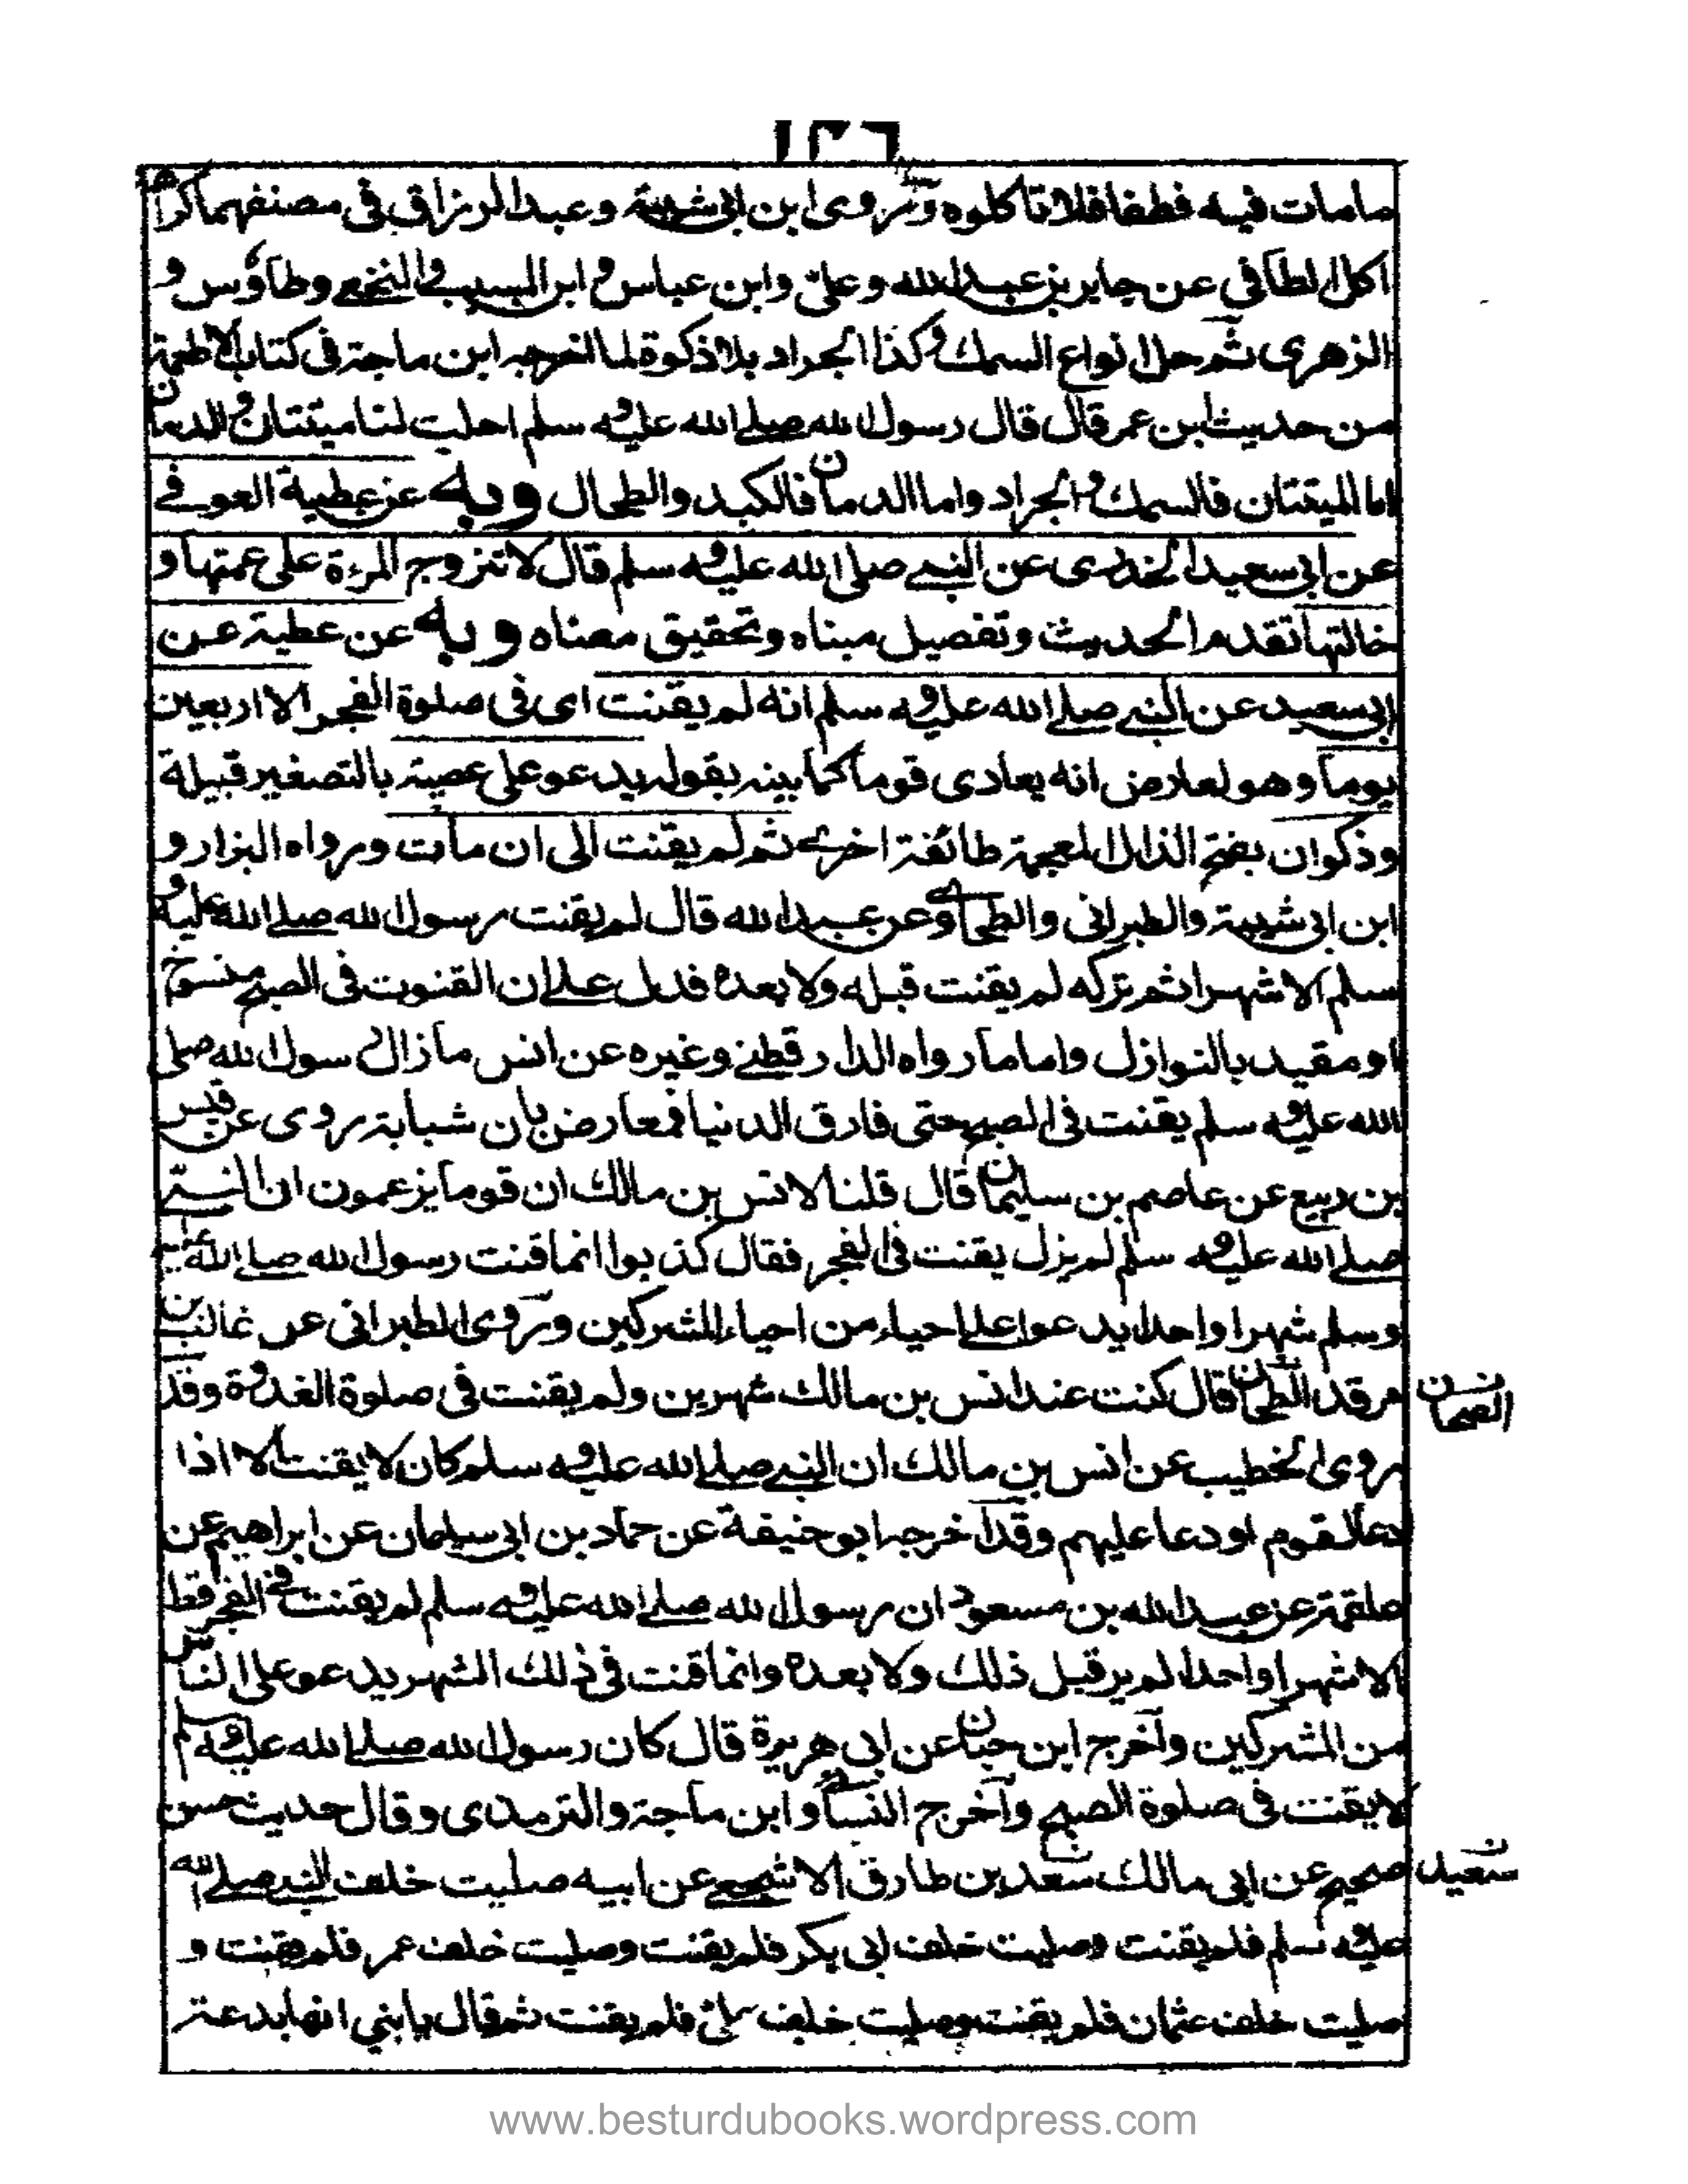 ١٣٦
مامات فيه فطفا فلا تاكلوه وروى ابن ابى شيبة وعبد الرزاق فى مصنفهما كراهة
اكل الطافي عن جابر بن عبد الله وعلى وابن عباس وابن المسيب والنخعي وطاؤس و
الزهرى ثم حل انواع السمك وكذا الجراد بلا ذكوة لما اخرجه ابن ماجة فى كتاب الاطعمة
من حديث ابن عمر قال قال رسول الله صلے الله عليه وسلم احلت لنا ميتتان والدمان
اما الميتتان فالسمك والجراد واما الدمان فالكبد والطحال وبه عن عطية العوفے
عن ابى سعيد الخدرى عن النبے صلى الله عليه وسلم قال لا تزوج المرءة على عمتها و
خالتها تقدم الحديث وتفصيل مبناه وتحقيق معناه وبه عن عطية عن
ابى سعيد عن النبے صلے الله عليه وسلم انه لم يقنت اى فى صلوة الفجر الا اربعين
يوما وهو لعارض انه يعادى قوما كما بينه بقوله يدعو على عصية بالتصغير قبيلة
وذكوان بفتح الذال المعجمة طائفة اخرے ثم لم يقنت الى ان مات ورواه البزار و
ابن ابى شيبة والطبرانى والطحاوے وعن عبد الله قال لم يقنت رسول الله صلے الله عليه و
سلم الا شهرا ثم تركه لم يقنت قبله ولا بعده فدل علے ان القنوت فى الصبح منسوخ
او مقيد بالنوازل واما ما رواه الدارقطنے وغيره عن انس ما زال رسول الله صلى
الله عليه وسلم يقنت فى الصبح حتى فارق الدنيا فمعارض بان شبابة روى عن قيس
بن ربيع عن عاصم بن سليمان قال قلنا لانس بن مالك ان قوما يزعمون ان النبے
صلے الله عليه وسلم لم يزل يقنت فى الفجر فقال كذبوا انما قنت رسول الله صلے الله عليه
وسلم شهرا واحدا يدعوا علے احياء من احياء المشركين وروى الطبرانى عن غالب بن
فرقد الطحان قال كنت عند انس بن مالك شهرين ولم يقنت فى صلوة الغدوة وقد
روى الخطيب عن انس بن مالك ان النبے صلے الله عليه وسلم كان لا يقنت الا اذا
دعا لقوم او دعا عليهم وقد اخرجه ابو حنيفة عن حماد بن ابى سليمان عن ابراهيم عن
علقمة عن عبد الله بن مسعود ان رسول الله صلے الله عليه وسلم لم يقنت فے الفجر قط
الا شهرا واحدا لم ير قبل ذلك ولا بعده وانما قنت فى ذلك الشهر يدعو على الناس
من المشركين وآخرج ابن حبان عن ابى هريرة قال كان رسول الله صلے الله عليه وسلم
لا يقنت فى صلوة الصبح وآخرج النسائے وابن ماجة والترمذى وقال حديث حسن
صحيح عن ابى مالك سعد بن طارق الاشجعے عن ابيه صليت خلف النبے صلے الله
سعيد
عليه وسلم فلم يقنت وصليت خلف ابى بكر فلم يقنت وصليت خلف عمر فلم يقنت و
صليت خلف عثمان فلم يقنت وصليت خلف على فلم يقنت ثم قال يا بني انها بدعة
www.besturdubooks.wordpress.com